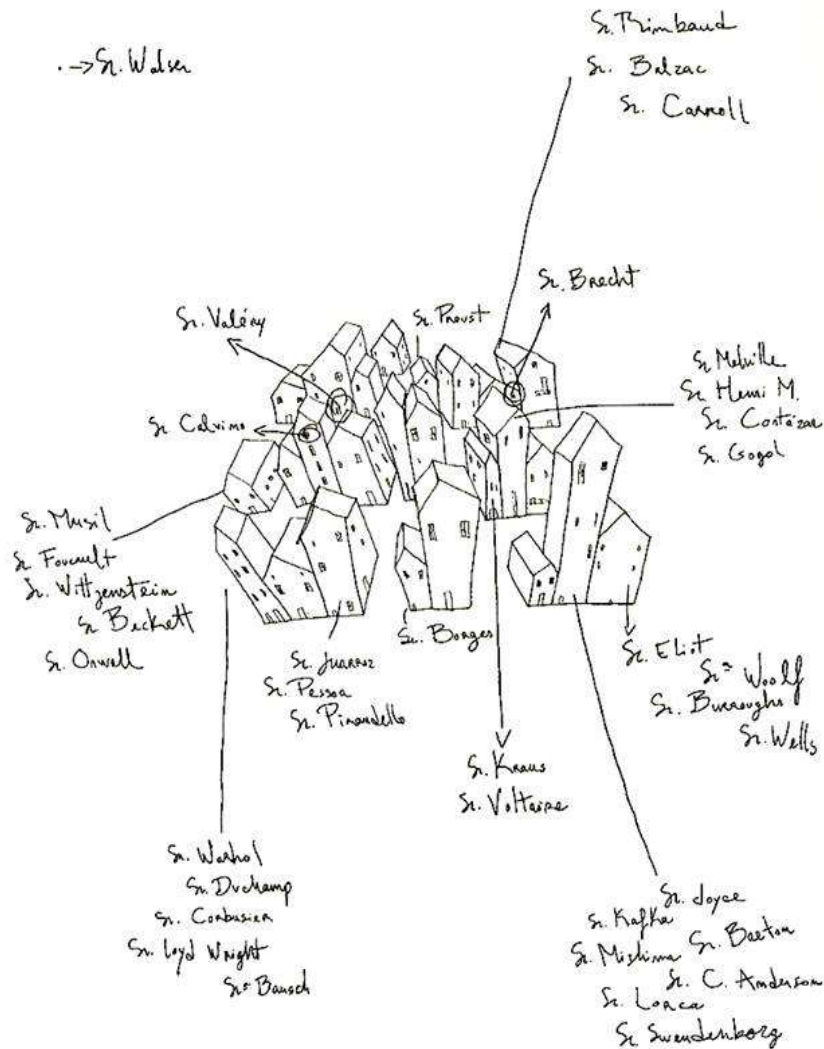 Sr. Rimbaud
Sr. Balzac
Sr. Carroll
Sr. Walser
Sr. Brecht
Sr. Valéry
Sr. Proust
Sr. Calvino
Sr. Melville
Sr. Henri M.
Sr. Cortázar
Sr. Gogol
Sr. Musil
Sr. Foucault
Sr. Wittgenstein
Sr. Beckett
Sr. Orwell
Sr. Juarroz
Sr. Pessoa
Sr. Pirandello
Sr. Borges
Sr. Eliot
Srª Woolf
Sr. Burroughs
Sr. Wells
Sr. Kraus
Sr. Voltaire
Sr. Warhol
Sr. Duchamp
Sr. Corbusier
Sr. Loyd Wright
Srª Bausch
Sr. Joyce
Sr. Kafka
Sr. Mishima Sr. Breton
Sr. C. Anderson
Sr. Lorca
Sr. Swendenborg